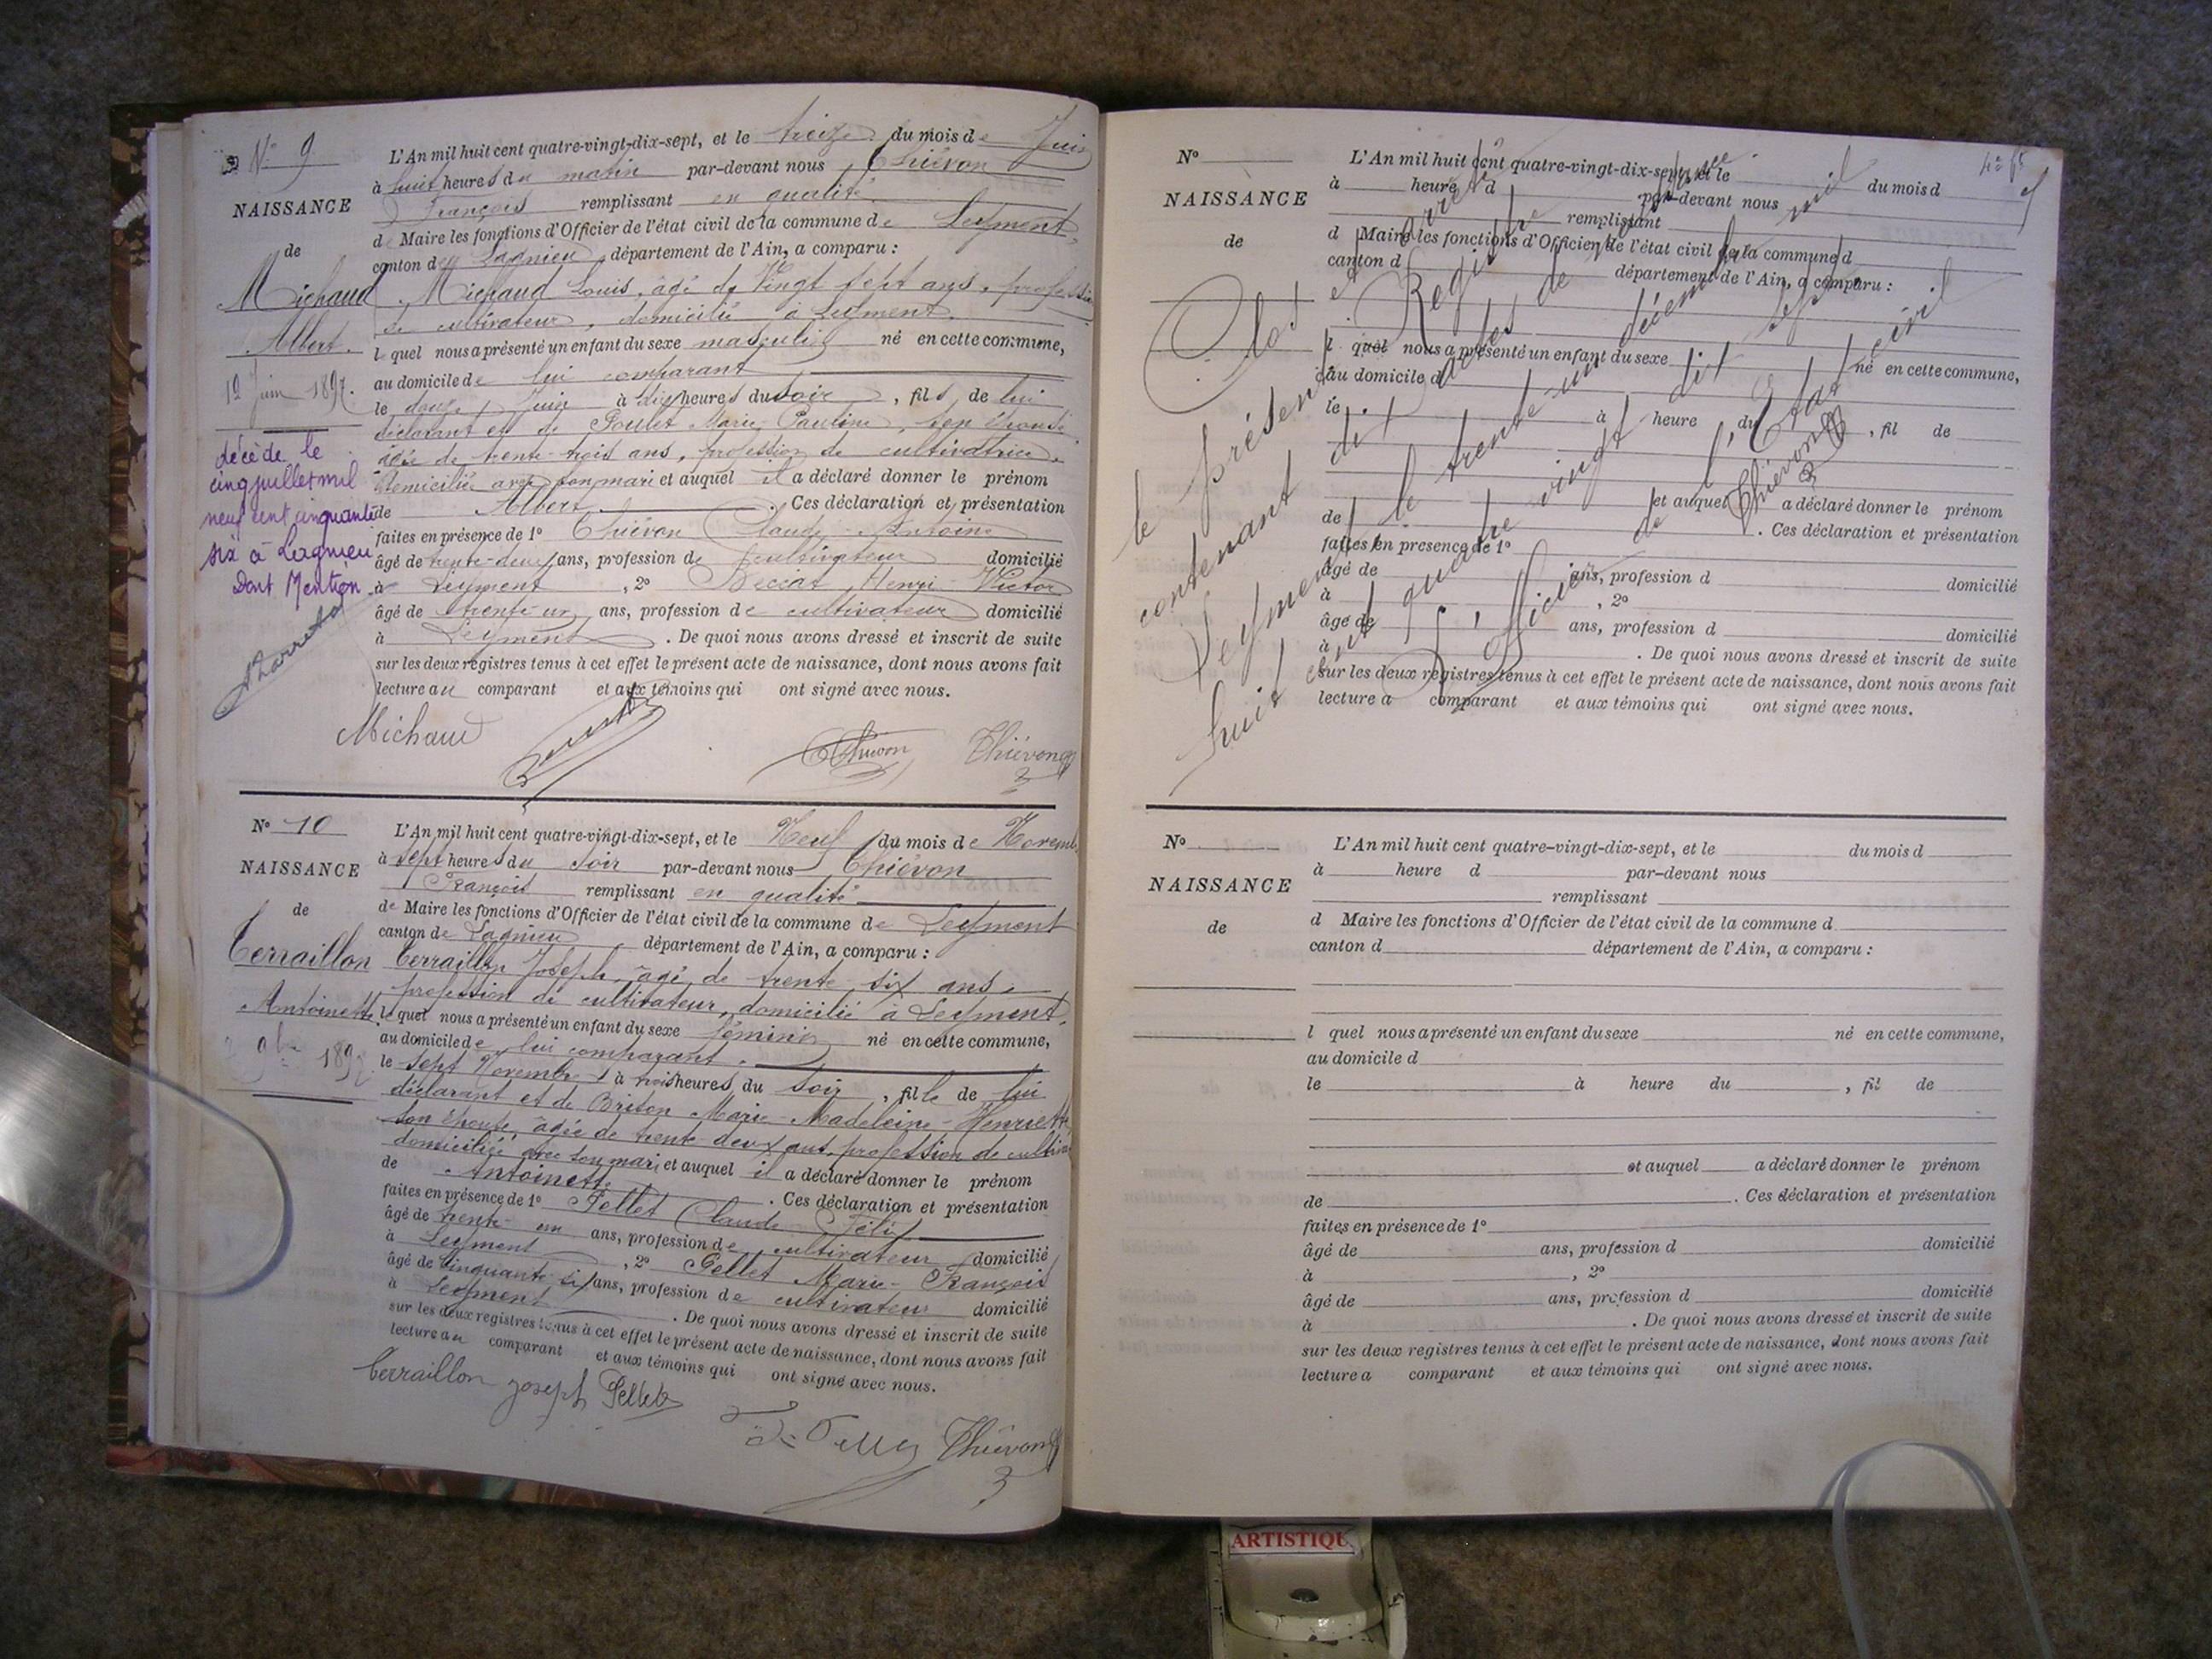 N° 9
NAISSANCE
de
Michaud
Albert.
12 Juin 1897.
décédé le
cinq juillet mil
neuf cent cinquante
six à Lagnieu
Dont Mention
L'An mil huit cent quatre-vingt-dix-sept, et le treize du mois de Juin
à huit heures du matin par-devant nous Thiévon
François remplissant en qualité
de Maire les fonctions d'Officier de l'état civil de la commune de Leyment,
canton de Lagnieu, département de l'Ain, a comparu :
Michaud Louis, âgé de Vingt sept ans, profession
de cultivateur, domicilié à Leyment.
lequel nous a présenté un enfant du sexe masculin né en cette commune,
au domicile de lui comparant
le douze Juin à dix heures du soir, fils de lui
déclarant et de Poulet Marie Pauline, son épouse
âgée de trente-trois ans, profession de cultivatrice,
domiciliée avec son mari et auquel il a déclaré donner le prénom
de Albert. Ces déclaration et présentation
faites en présence de 1° Thiévon Claude-Antoine
âgé de trente-deux ans, profession de cultivateur domicilié
à Leyment, 2° Henri-Victor
âgé de trente-un ans, profession de cultivateur domicilié
à Leyment. De quoi nous avons dressé et inscrit de suite
sur les deux registres tenus à cet effet le présent acte de naissance, dont nous avons fait
lecture au comparant et aux témoins qui ont signé avec nous.
Michaud
Thiévon Thiévon
N° 10
NAISSANCE
de
Terraillon
Antoinette
9bre 1897
L'An mil huit cent quatre-vingt-dix-sept, et le Neuf du mois de Novemb.
à sept heures du soir par-devant nous Thiévon
François remplissant en qualité
de Maire les fonctions d'Officier de l'état civil de la commune de Leyment
canton de Lagnieu département de l'Ain, a comparu :
Terraillon Joseph, âgé de trente six ans,
profession de cultivateur, domicilié à Leyment,
lequel nous a présenté un enfant du sexe féminin né en cette commune,
au domicile de lui comparant.
le sept Novembre à trois heures du soir, fille de lui
déclarant et de Briton Marie-Madeleine-Henriette
son épouse, âgée de trente-deux ans, profession de cultiv
domiciliée avec son mari et auquel il a déclaré donner le prénom
de Antoinette. Ces déclaration et présentation
faites en présence de 1° Pellet Claude Félix
âgé de trente-un ans, profession de cultivateur domicilié
à Leyment, 2° Pellet Marie-François
âgé de cinquante-six ans, profession de cultivateur domicilié
à Leyment. De quoi nous avons dressé et inscrit de suite
sur les deux registres tenus à cet effet le présent acte de naissance, dont nous avons fait
lecture au comparant et aux témoins qui ont signé avec nous.
Terraillon Joseph Pellet
Thiévon
N°
NAISSANCE
de
L'An mil huit cent quatre-vingt-dix-sept, et le du mois d
à heure d par-devant nous
remplissant
d Maire les fonctions d'Officier de l'état civil de la commune d
canton d département de l'Ain, a comparu :
l quel nous a présenté un enfant du sexe né en cette commune,
au domicile d
le à heure du , fil de
et auquel a déclaré donner le prénom
de . Ces déclaration et présentation
faites en présence de 1°
âgé de ans, profession d domicilié
à , 2°
âgé de ans, profession d domicilié
à . De quoi nous avons dressé et inscrit de suite
sur les deux registres tenus à cet effet le présent acte de naissance, dont nous avons fait
lecture a comparant et aux témoins qui ont signé avec nous.
Clos et arrêté
le présent Registre
contenant dix actes de
Leyment, le trente-un décembre mil
huit cent quatre vingt dix sept
L'Officier de l'Etat civil
Thiévon
N°
NAISSANCE
de
L'An mil huit cent quatre-vingt-dix-sept, et le du mois d
à heure d par-devant nous
remplissant
d Maire les fonctions d'Officier de l'état civil de la commune d
canton d département de l'Ain, a comparu :
l quel nous a présenté un enfant du sexe né en cette commune,
au domicile d
le à heure du , fil de
et auquel a déclaré donner le prénom
de . Ces déclaration et présentation
faites en présence de 1°
âgé de ans, profession d domicilié
à , 2°
âgé de ans, profession d domicilié
à . De quoi nous avons dressé et inscrit de suite
sur les deux registres tenus à cet effet le présent acte de naissance, dont nous avons fait
lecture a comparant et aux témoins qui ont signé avec nous.
ARTISTIQU